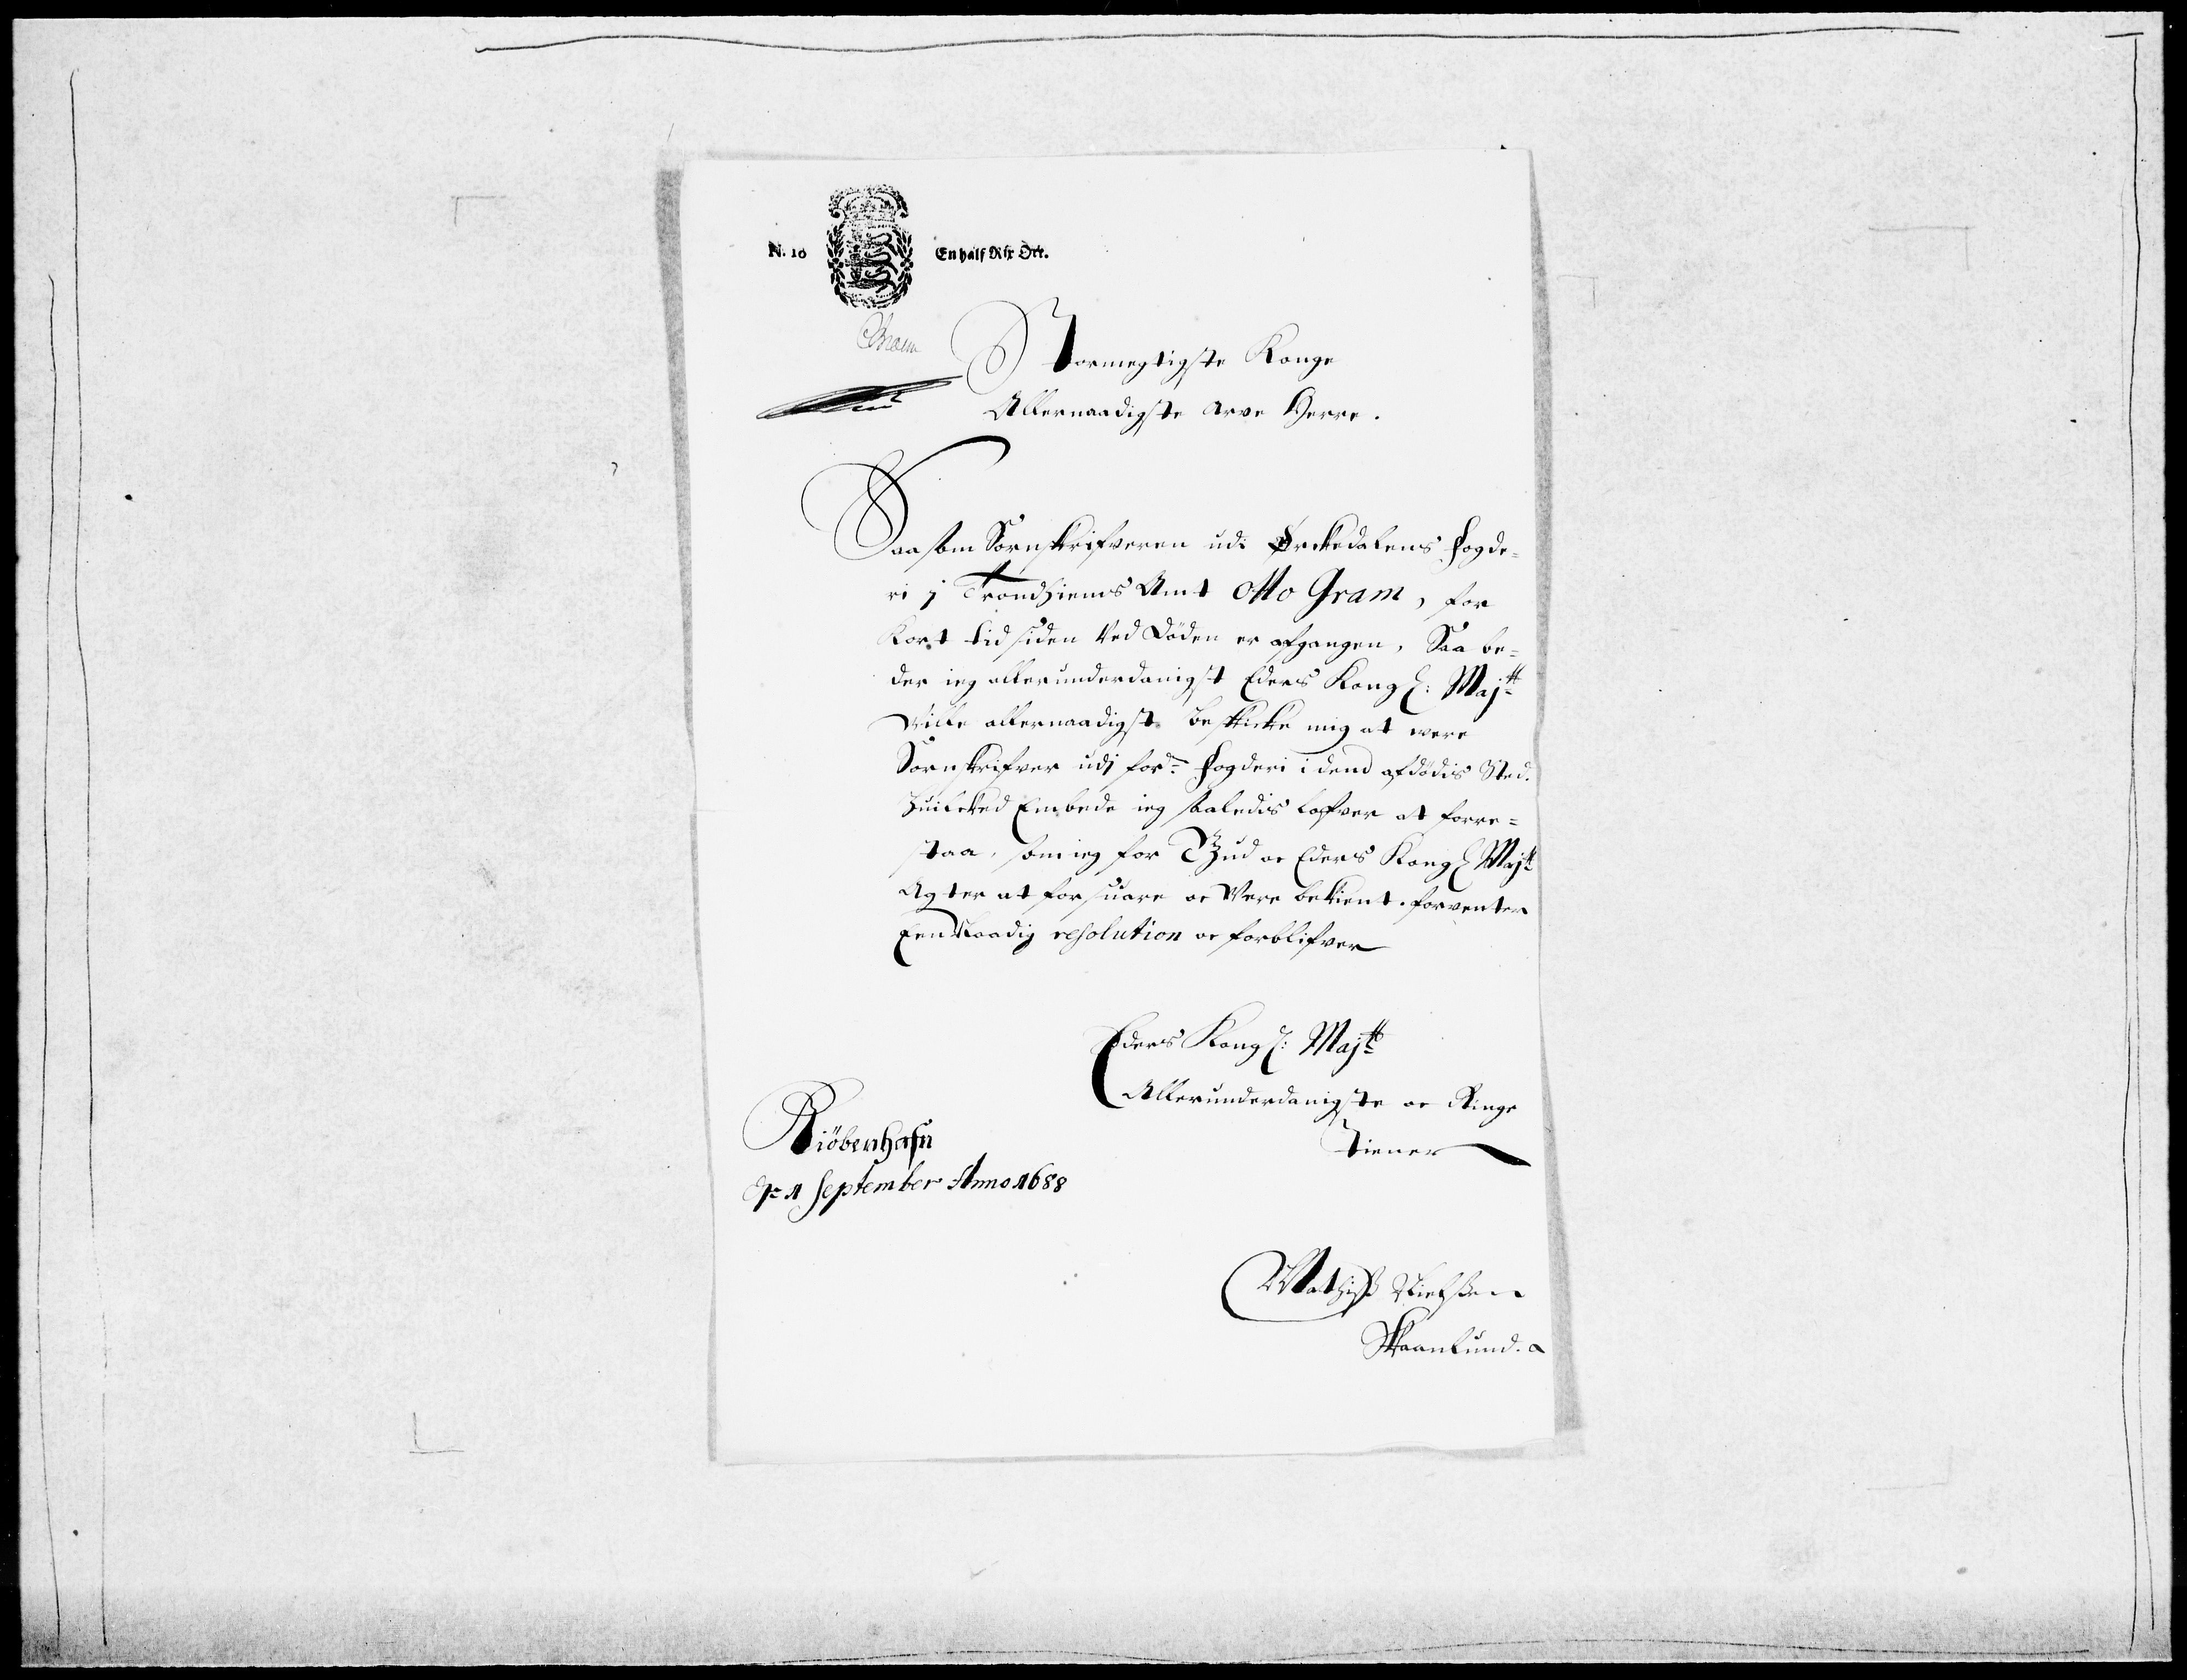 N. 10 En half Rix Ort.
Stormegtigste Konge
Allernaadigste Arve Herre.
Saasom Sornskrifveren udi Ørckedalens fogde-
ri j Trondhiems Amt Otto Gram, for
Kort tid siden ved Döden er afgangen, Saa be-
der ieg allerunderdanigst Eders Kongl: Majtt
Wille allernaadigst beskicke mig at were
Sornskrifver udj forne fogderi i dend afdödis Sted.
Huilcked Embede ieg saaledis lofver at forre-
staa, som ieg for Gud oc Eders Kongl Majtt
Agter at forsuare oc Were bekient. forventer
Een Naadig resolution oc forblifver
Eders Kongl: Majtt
Allerunderdanigste oc Ringe
Tiener
Kiöbenhafn
d. 1 September Anno 1688
Mathiß Nielßen
Skaanlund.